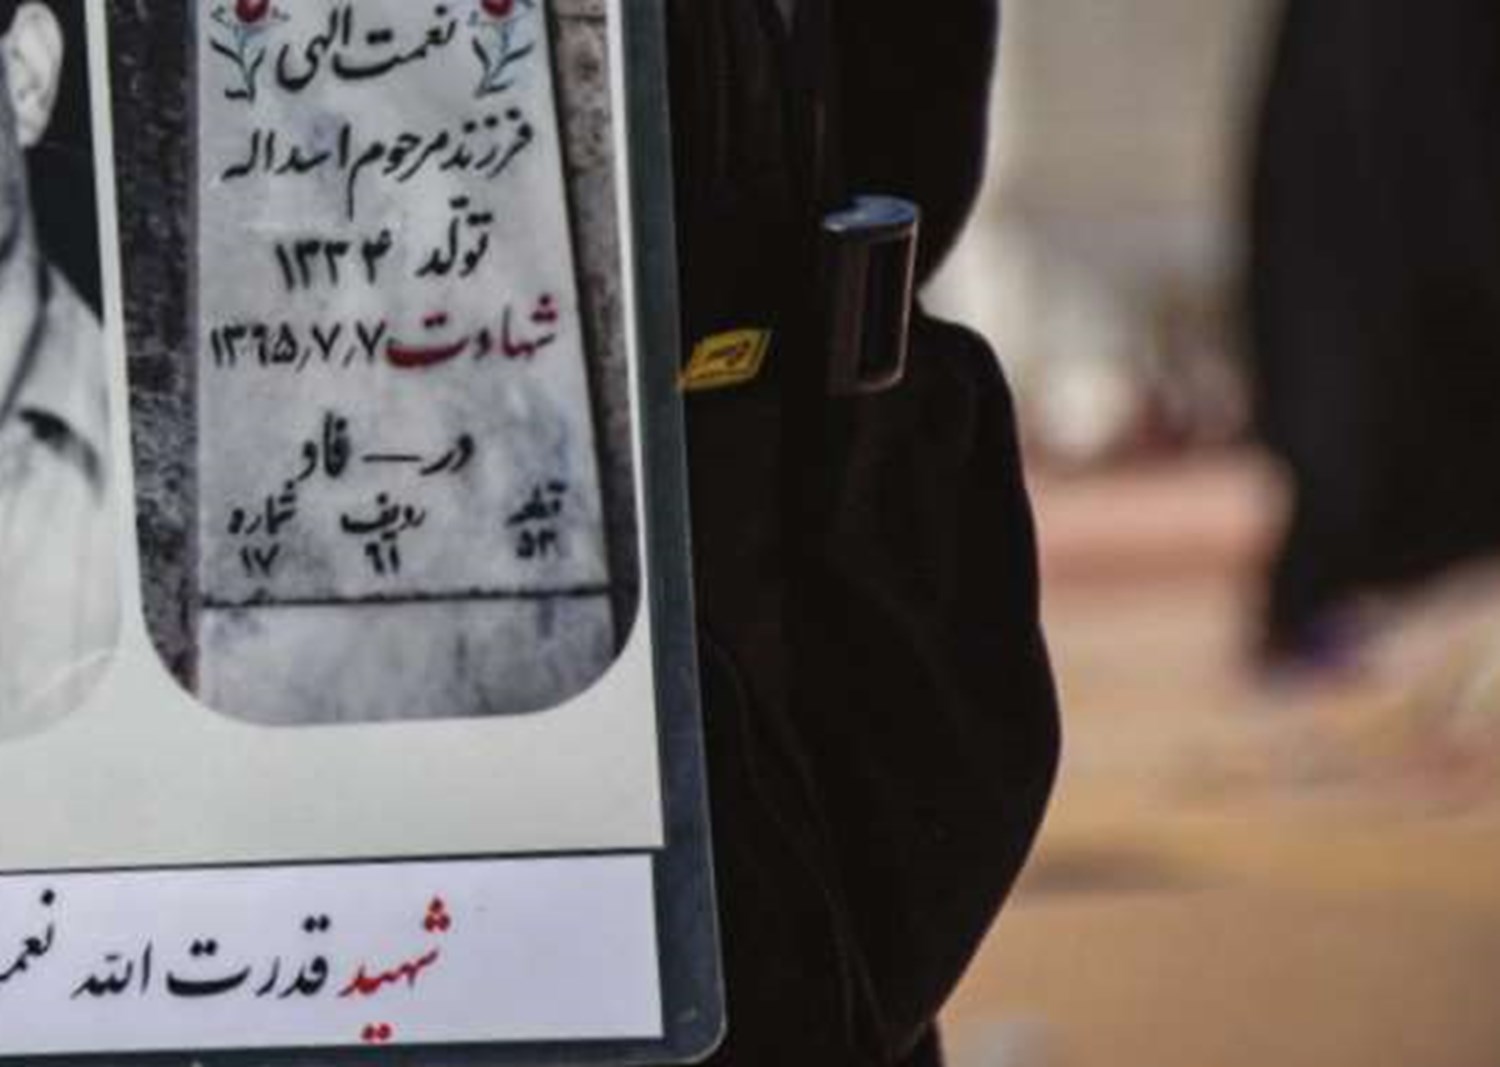 نعمت الهی
فرزند مرحوم اسداله
تولّد ۱۳۳۴
شهادت ۱۳۶۵٫۷٫۷
در – فاو
قطعه ردیف شماره
۵۳ ۶۱ ۱۷
شهید قدرت الله نعم